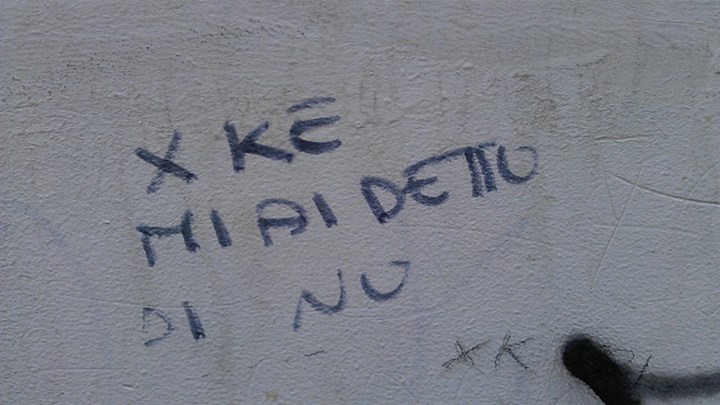 X KE
MI AI DETTO
DI NO
XK